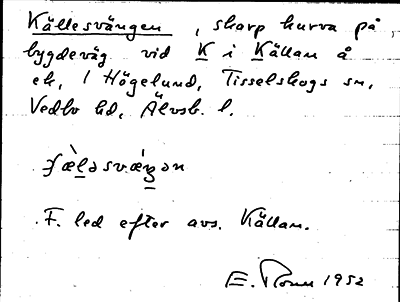 Källesvängen, skarp kurva på
bygdeväg vid K i Källan å
ek, 1 Högelund, Tisselskogs sn,
Vedbo hd, Älvsb. l.
F. led efter avs. Källan.
E. 1952